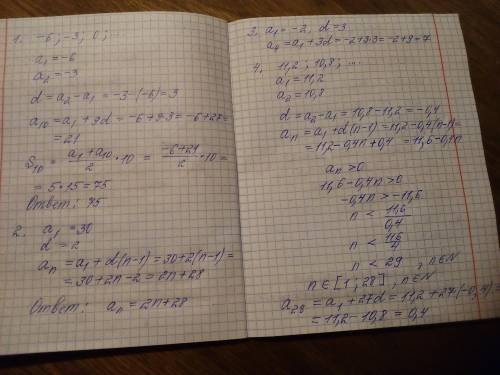 1. -6; -3; 0; ...
a₁ = -6
a₂ = -3
d = a₂ - a₁ = -3 - (-6) = 3
a₁₀ = a₁ + 9d = -6 + 9·3 = -6 + 27 =
= 21
S₁₀ = (a₁ + a₁₀)/2 · 10 = (-6 + 21)/2 · 10 =
= 5 * 15 = 75
Ответ: 75
2. a₁ = 30
d = 2
aₙ = a₁ + d(n-1) = 30 + 2(n-1) =
= 30 + 2n - 2 = 2n + 28
Ответ: aₙ = 2n + 28
3. a₁ = -2, d = 3
a₄ = a₁ + 3d = -2 + 3·3 = -2 + 9 = 7
4. 11,2; 10,8; ...
a₁ = 11,2
a₂ = 10,8
d = a₂ - a₁ = 10,8 - 11,2 = -0,4
aₙ = a₁ + d(n-1) = 11,2 - 0,4(n-1) =
= 11,2 - 0,4n + 0,4 = 11,6 - 0,4n
aₙ > 0
11,6 - 0,4n > 0
-0,4n > -11,6
n < 11,6/0,4
n < 116/4
n < 29, n ∈ N
n ∈ [1; 28], n ∈ N
a₂₈ = a₁ + 27d = 11,2 + 27(-0,4) =
= 11,2 - 10,8 = 0,4